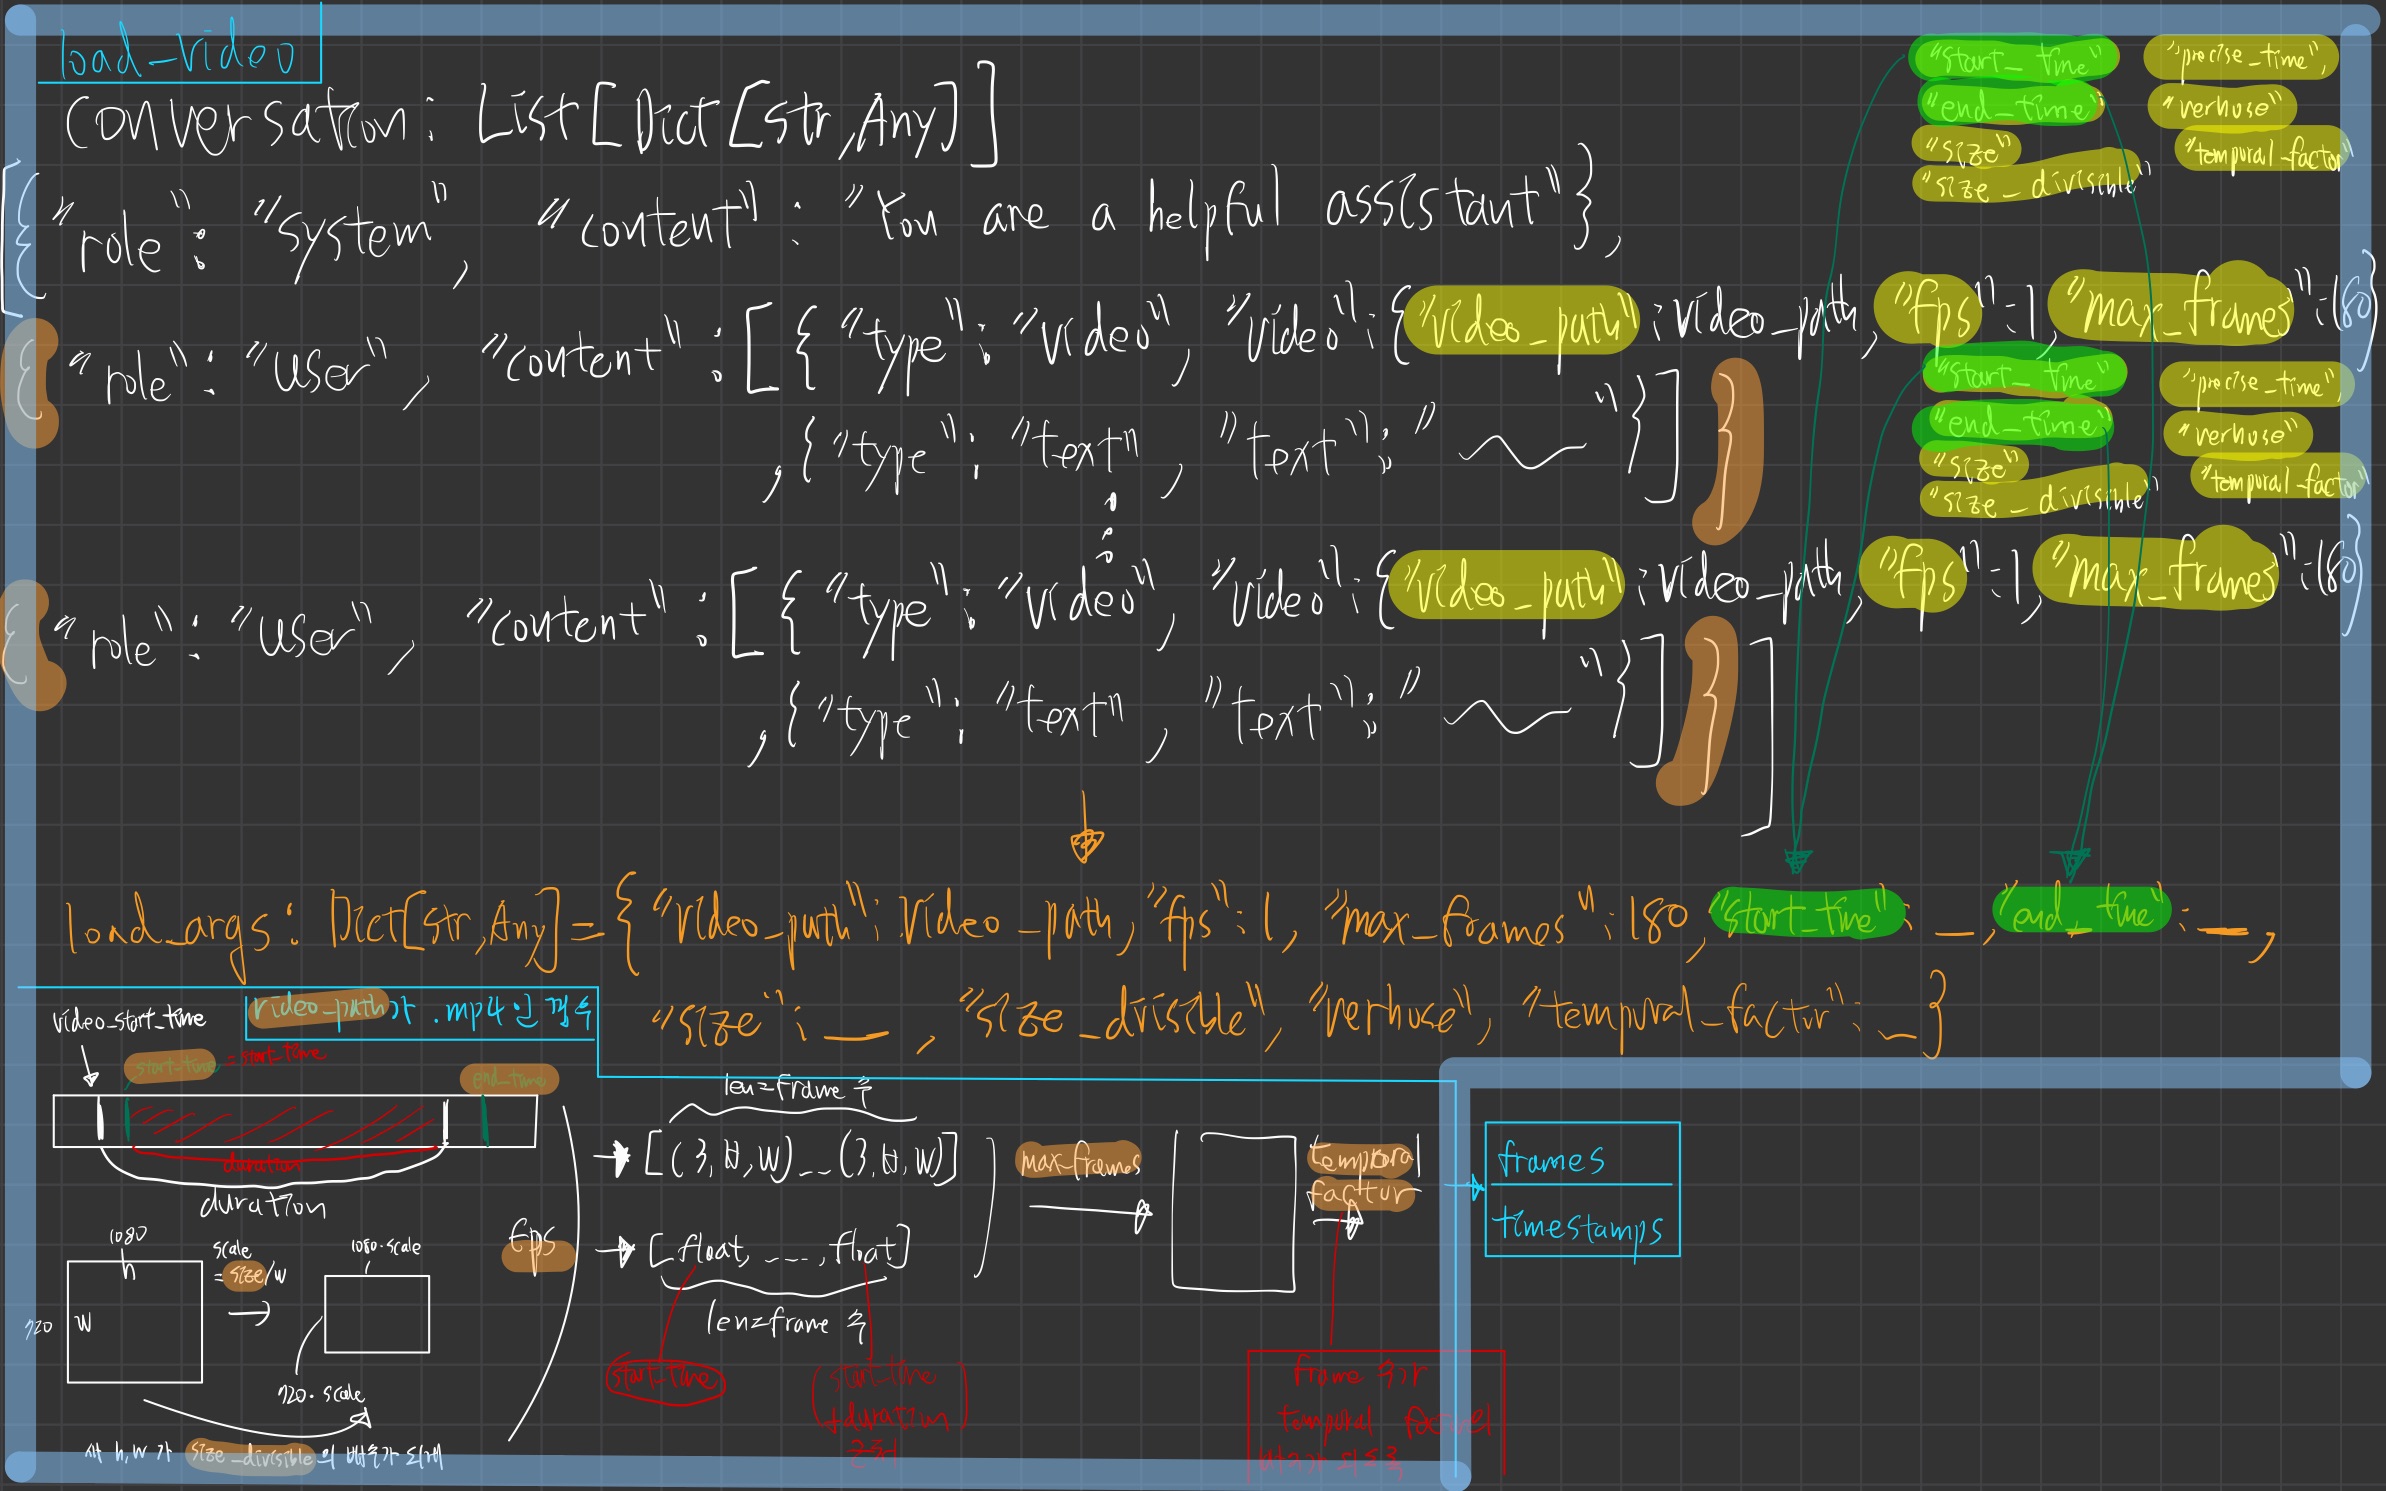 load_video
conversation: List[Dict[str, Any]]
"start_time" "precise_time",
"end_time" "verbose"
"size" "temporal_factor"
"size_divisible"
[{"role": "system", "content": "You are a helpful assistant"},
{"role": "user", "content": [{"type": "video", "video": {"video_path": video_path, "fps": 1, "max_frames": 180}
"start_time" "precise_time",
"end_time" "verbose"
"size" "temporal_factor"
"size_divisible"
,{"type": "text", "text": " "}]}
{"role": "user", "content": [{"type": "video", "video": {"video_path": video_path, "fps": 1, "max_frames": 180}
,{"type": "text", "text": " "}]}]
load_args: Dict[str, Any] = {"video_path": video_path, "fps": 1, "max_frames": 180, "start_time": _, "end_time": _,
"size": _, "size_divisible", "verbose", "temporal_factor": _}
video_path가 .mp4인 경우
video_start_time
start_time = start_time
end_time
duration
duration
1080
h
w
720
scale
= size/w
1080·scale
720·scale
새 h, w가 size_divisible의 배수가 되게
fps
len=frame 수
[(3,H,W)--(3,H,W)]
[float, ----, float]
len=frame 수
start_time
(start_time
+duration
근처)
max_frames
temporal
factor
frame 수가
temporal factor
배수가 되도록
frames
timestamps